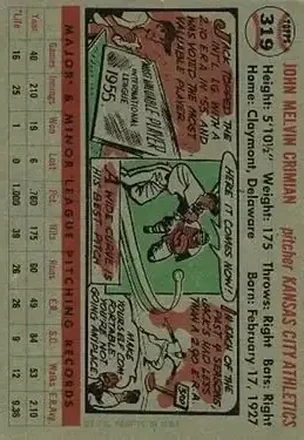 TOPPS
319
JOHN MELVIN CRIMIAN
pitcher KANSAS CITY ATHLETICS
Height: 5'10½" Weight: 175 Throws: Right Bats: Right
Home: Claymont, Delaware Born: February 17, 1927
JACK TOPPED THE
INT'L LG. WITH A
2.10 ERA IN '55, AND
WAS VOTED THE MOST
VALUABLE PLAYER.
MOST VALUABLE PLAYER
INTERNATIONAL
LEAGUE
1955
HERE IT COMES NOW!
A WIDE CURVE IS
HIS BEST PITCH.
IN EACH OF THE
PAST 4 SEASONS
JACK'S HAD LESS
THAN A 3.00 ERA.
MAKE
YOURSELF COM-
FORTABLE
YOU'RE NOT
GOING ANYPLACE
3.00
MAJOR & MINOR LEAGUE PITCHING RECORDS
Games Innings Won Lost Pct. Hits Runs E.R. S.O. Walks E.R.Avg.
Year 40 210 19 6 .760 175 60 49 84 53 2.10
Life 16 25 1 0 1.000 38 26 26 9 12 9.36